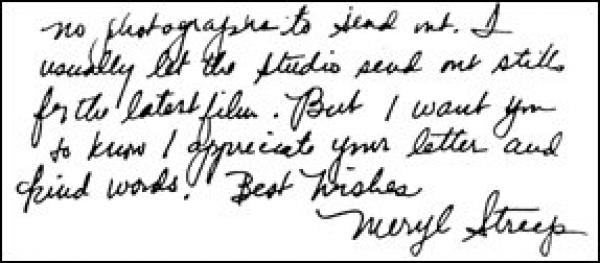 no photographs to send out. I
usually let the studio send out stills
for the latest film. But I want you
to know I appreciate your letter and
kind words. Best Wishes
Meryl Streep